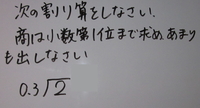 次の割り算をしなさい.
商は小数第1位まで求め,あまり
も出しなさい
0.3√2